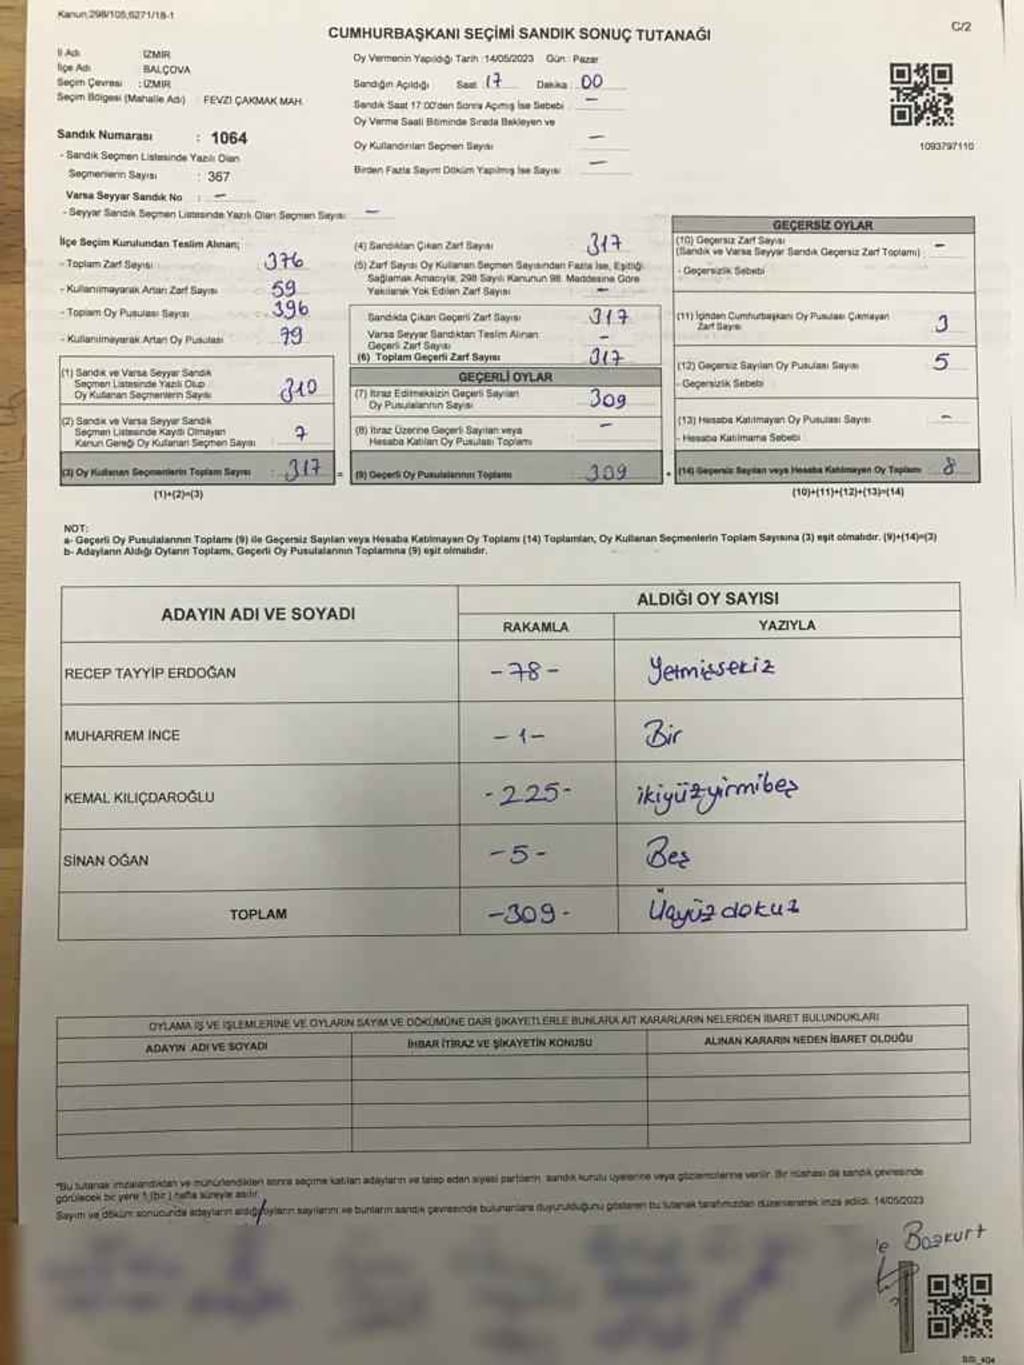 Kanun;298/105,6271/18-1
C/2
CUMHURBAŞKANI SEÇİMİ SANDIK SONUÇ TUTANAĞI
İl Adı : İZMİR
İlçe Adı : BALÇOVA
Seçim Çevresi : İZMİR
Seçim Bölgesi (Mahalle Adı) : FEVZİ ÇAKMAK MAH.
Sandık Numarası : 1064
- Sandık Seçmen Listesinde Yazılı Olan
Seçmenlerin Sayısı : 367
Varsa Seyyar Sandık No : -
- Seyyar Sandık Seçmen Listesinde Yazılı Olan Seçmen Sayısı -
Oy Vermenin Yapıldığı Tarih :14/05/2023 Gün : Pazar
Sandığın Açıldığı Saat : 17 Dakika : 00
Sandık Saat 17:00'den Sonra Açımış İse Sebebi : -
Oy Verme Saati Bitiminde Sırada Bekleyen ve
Oy Kullandırılan Seçmen Sayısı -
Birden Fazla Sayım Döküm Yapılmış İse Sayısı -
1093797110
İlçe Seçim Kurulundan Teslim Alınan;
- Toplam Zarf Sayısı 376
- Kullanılmayarak Artan Zarf Sayısı 59
- Toplam Oy Pusulası Sayısı 396
- Kullanılmayarak Artan Oy Pusulası 79
(1) Sandık ve Varsa Seyyar Sandık
Seçmen Listesinde Yazılı Olup
Oy Kullanan Seçmenlerin Sayısı 310
(2) Sandık ve Varsa Seyyar Sandık
Seçmen Listesinde Kaydı Olmayan
Kanun Gereği Oy Kullanan Seçmen Sayısı 7
(3) Oy Kullanan Seçmenlerin Toplam Sayısı : 317 =
(1)+(2)=(3)
(4) Sandıktan Çıkan Zarf Sayısı 317
(5) Zarf Sayısı Oy Kullanan Seçmen Sayısından Fazla İse, Eşitliği
Sağlamak Amacıyla, 298 Sayılı Kanunun 98. Maddesine Göre
Yakılarak Yok Edilen Zarf Sayısı -
Sandıkta Çıkan Geçerli Zarf Sayısı 317
Varsa Seyyar Sandıktan Teslim Alınan
Geçerli Zarf Sayısı -
(6) Toplam Geçerli Zarf Sayısı 317
GEÇERLİ OYLAR
(7) İtiraz Edilmeksizin Geçerli Sayılan
Oy Pusulalarının Sayısı 309
(8) İtiraz Üzerine Geçerli Sayılan veya
Hesaba Katılan Oy Pusulası Toplamı -
(9) Geçerli Oy Pusulalarının Toplamı 309 +
GEÇERSİZ OYLAR
(10) Geçersiz Zarf Sayısı
(Sandık ve Varsa Seyyar Sandık Geçersiz Zarf Toplamı) : -
- Geçersizlik Sebebi
(11) İçinden Cumhurbaşkanı Oy Pusulası Çıkmayan
Zarf Sayısı 3
(12) Geçersiz Sayılan Oy Pusulası Sayısı 5
- Geçersizlik Sebebi
(13) Hesaba Katılmayan Oy Pusulası Sayısı -
- Hesaba Katılmama Sebebi
(14) Geçersiz Sayılan veya Hesaba Katılmayan Oy Toplamı 8
(10)+(11)+(12)+(13)=(14)
NOT:
a- Geçerli Oy Pusulalarının Toplamı (9) ile Geçersiz Sayılan veya Hesaba Katılmayan Oy Toplamı (14) Toplamları, Oy Kullanan Seçmenlerin Toplam Sayısına (3) eşit olmalıdır. (9)+(14)=(3)
b- Adayların Aldığı Oyların Toplamı, Geçerli Oy Pusulalarının Toplamına (9) eşit olmalıdır.
ADAYIN ADI VE SOYADI
ALDIĞI OY SAYISI
RAKAMLA YAZIYLA
RECEP TAYYİP ERDOĞAN -78- Yetmişsekiz
MUHARREM İNCE -1- Bir
KEMAL KILIÇDAROĞLU -225- ikiyüzyirmibeş
SİNAN OĞAN -5- Beş
TOPLAM -309- Üçyüzdokuz
OYLAMA İŞ VE İŞLEMLERİNE VE OYLARIN SAYIM VE DÖKÜMÜNE DAİR ŞİKAYETLERLE BUNLARA AİT KARARLARIN NELERDEN İBARET BULUNDUKLARI
ADAYIN ADI VE SOYADI İHBAR İTİRAZ VE ŞİKAYETİN KONUSU ALINAN KARARIN NEDEN İBARET OLDUĞU
*Bu tutanak imzalandıktan ve mühürlendikten sonra seçime katılan adayların ve talep eden siyasi partilerin, sandık kurulu üyelerine veya gözlemcilerine verilir. Bir nüshası da sandık çevresinde
görülecek bir yere 1 (bir) hafta süreyle asılır.
Sayım ve döküm sonucunda adayların aldığı oyların sayılarını ve bunların sandık çevresinde bulunanlara duyurulduğunu gösteren bu tutanak tarafımızdan düzenlenerek imza edildi. 14/05/2023
Bozkurt